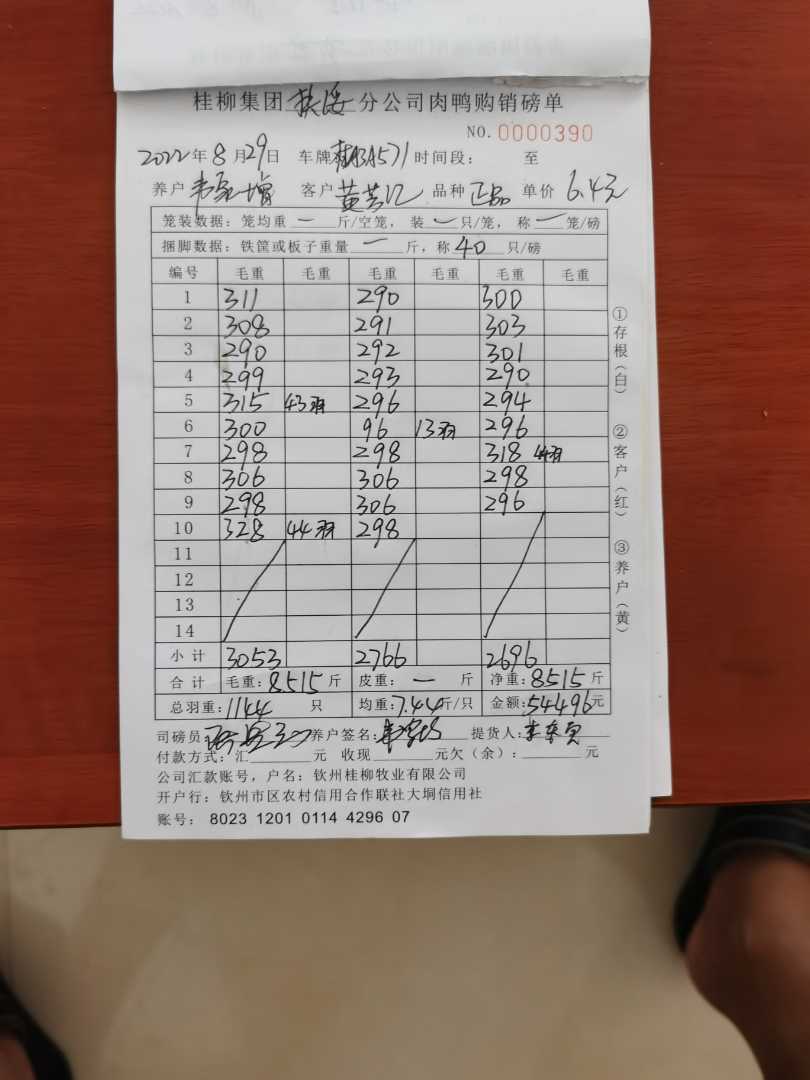 桂柳集团扶绥分公司肉鸭购销磅单
NO. 0000390
2022年8月29日 车牌桂ABA571 时间段： 至
养户 客户 黄芸 品种 正品 单价 6.4元
笼装数据：笼均重 一 斤/空笼， 装 一 只/笼， 称 一 笼/磅
捆脚数据：铁筐或板子重量 一 斤，称 40 只/磅
编号 毛重 毛重 毛重 毛重 毛重 毛重
1 311 290 300
2 308 291 303
3 290 292 301
4 299 293 290
5 315 43羽 296 294
6 300 96 13羽 296
7 298 298 318 44羽
8 306 306 298
9 298 306 296
10 328 44羽 298
11
12
13
14
小计 3053 2766 2696
合计 毛重：8515 斤 皮重： 一 斤 净重：8515 斤
总羽重：1144 只 均重：7.44斤/只 金额：54496元
司磅员： 养户签名： 提货人：
付款方式：汇 元 收现 元欠（余）： 元
公司汇款账号，户名：钦州桂柳牧业有限公司
开户行：钦州市区农村信用合作联社大垌信用社
账号： 8023 1201 0114 4296 07
①存根（白）
②客户（红）
③养户（黄）